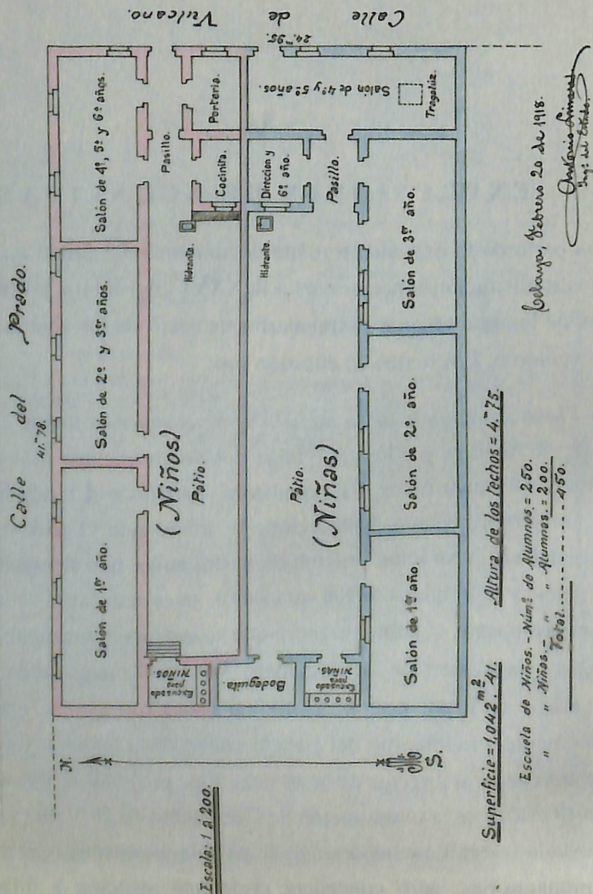 Calle del Prado.
41.m78.
Calle de Vulcano.
24.m95.
N.
S.
Escala: 1 á 200.
Salón de 1er año.
Salón de 2º y 3er años.
Salón de 4º, 5º y 6º años.
Pasillo.
Portería.
Cocinita.
Hidrante.
Patio.
(Niños)
Escusado para NIÑOS.
Bodeguita.
Escusado para NIÑAS.
Patio.
(Niñas)
Hidrante.
Direccion y 6º año.
Pasillo.
Salón de 4º y 5º años.
Tragaluz.
Salón de 1er año.
Salón de 2º año.
Salón de 3er año.
Superficie = 1,042.m2 41. Altura de los techos = 4.m75.
Escuela de Niños. - Núm.º de Alumnos = 250.
" " Niñas. - " " Alumnas. = 200.
Total........ 450.
Celaya, Febrero 20 de 1918.
Antonio Linares
Ing.º del Estado.